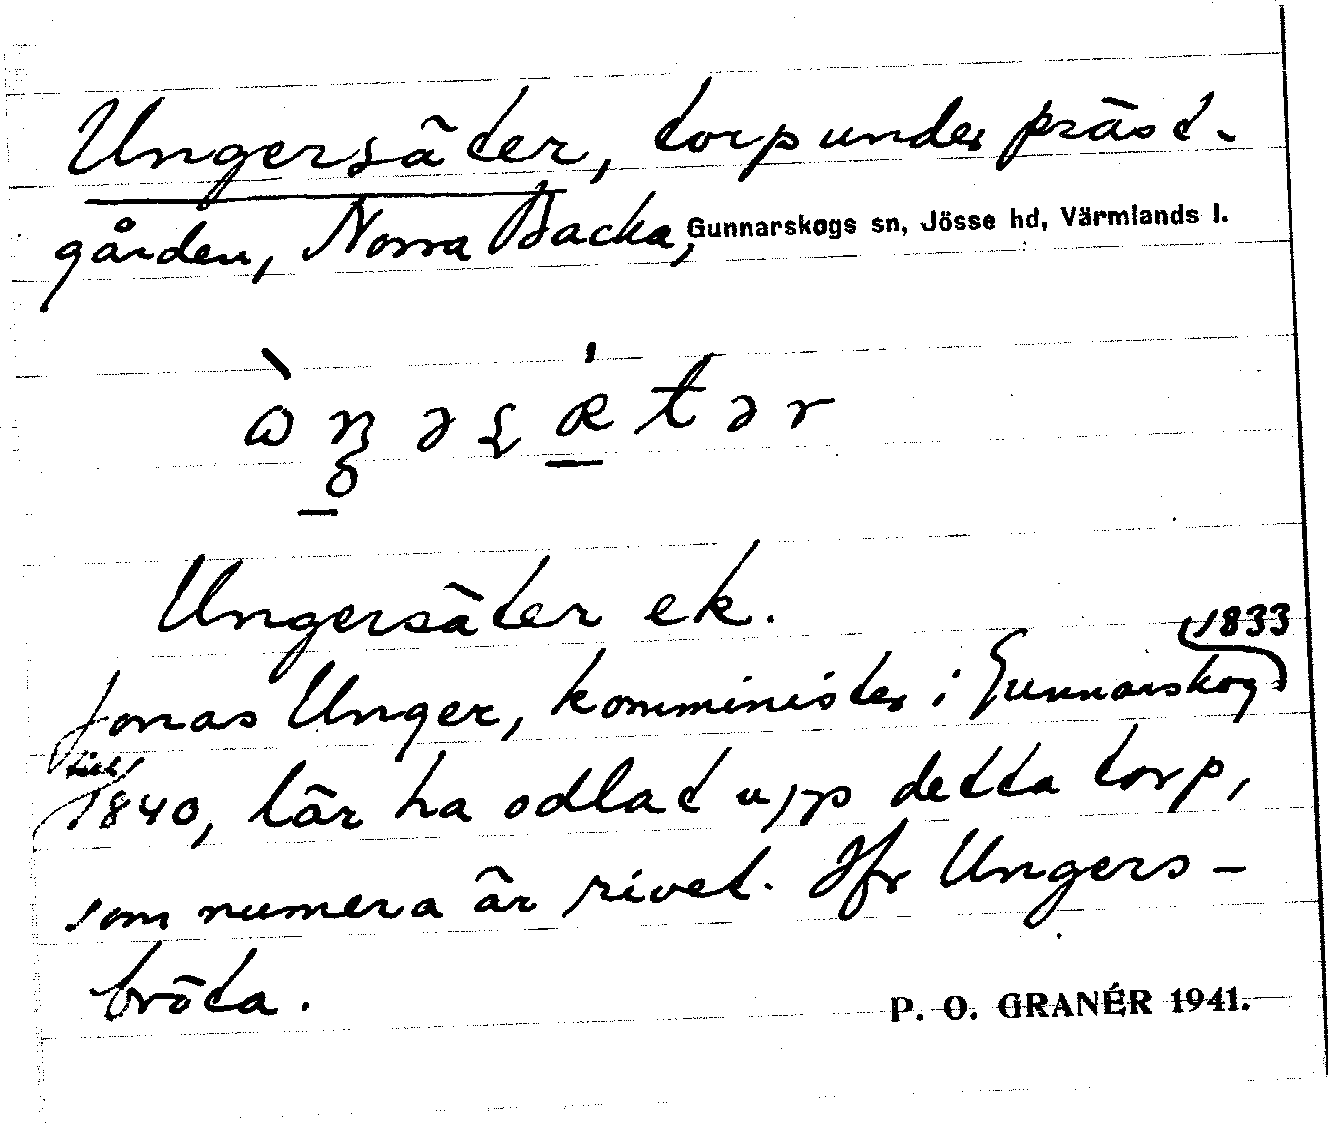 Ungersäter, torp under präst-
gården, Norra Backa, Gunnarskogs sn, Jösse hd, Värmlands l.
Ungersäter ek.
Jonas Unger, komminister i Gunnarskog 1833
till 1840, lär ha odlat upp detta torp,
som numera är rivet. Jfr Ungers-
bröta.
P. O. GRANÉR 1941.